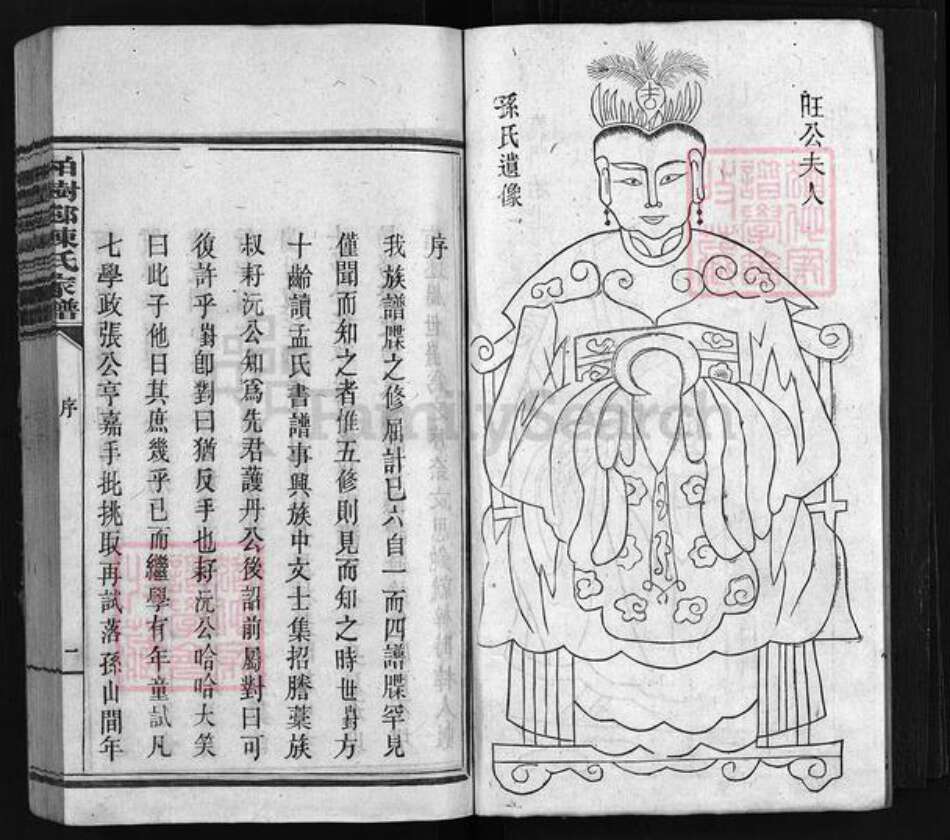 旺公夫人
孫氏遺像
序
我族譜牒之修屈計已六自一而四譜牒罕見
僅聞而知之者惟五修則見而知之時世對方
十齡讀孟氏書譜事興族中文士集招謄藁族
叔籽沅公知爲先君護丹公後詔前屬對曰可
復許乎對卽對曰猶反手也籽沅公哈哈大笑
曰此子他日其庶幾乎已而繼學有年童試凡
七學政張公亨嘉手批挑取再試落孫山間年
柏樹鄒陳氏家譜
序
一
FamilySearch